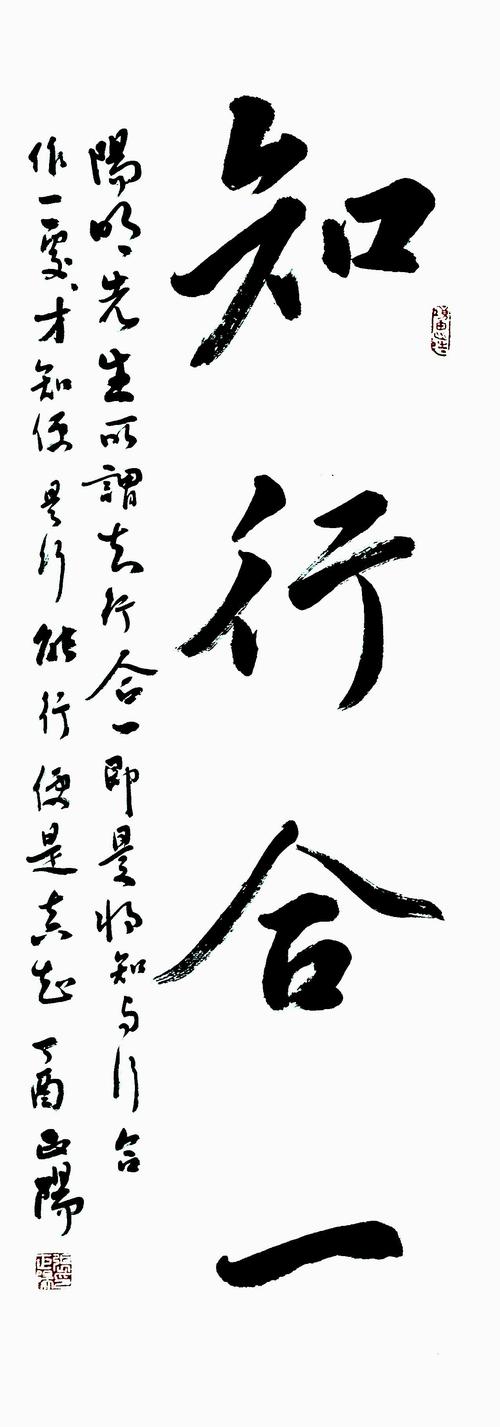 知行合一
陽明先生所謂知行合一即是將知与行合
作一處才知便是行能行便是真知丁酉正陽